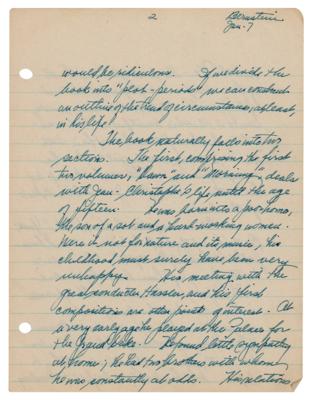 2
Bernstein
Jan-7
would be ridiculous. If we divide the
book into "plot-periods" we can construct
an outline of the trend of circumstance, at least,
in his life.
The book naturally falls into two
sections. The first, comprising the first
two volumes, "Dawn" and "Morning" deals
with Jean-Christophe's life until the age
of fifteen. He was born into a poor home,
the son of a sot and a hard-working woman.
Were it not for nature and its music, his
childhood must surely have been very
unhappy. His meeting with the
great conductor Hassler, and his first
compositions are other points of interest. At
a very early age he played at the Palace for
the Grand Duke. He found little sympathy
at home; he had two brothers with whom
he was constantly at odds. His relations